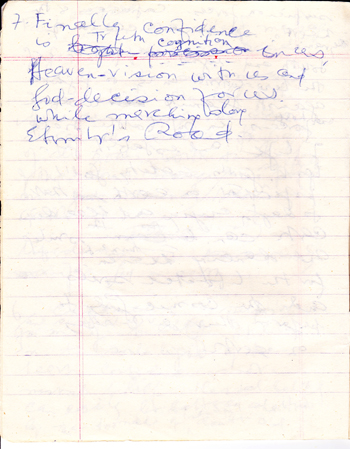 7. Finally confidence
is Truth cognition in us,
Heaven-vision with us and
God-decision for us,
while marching along
Eternity's Road.